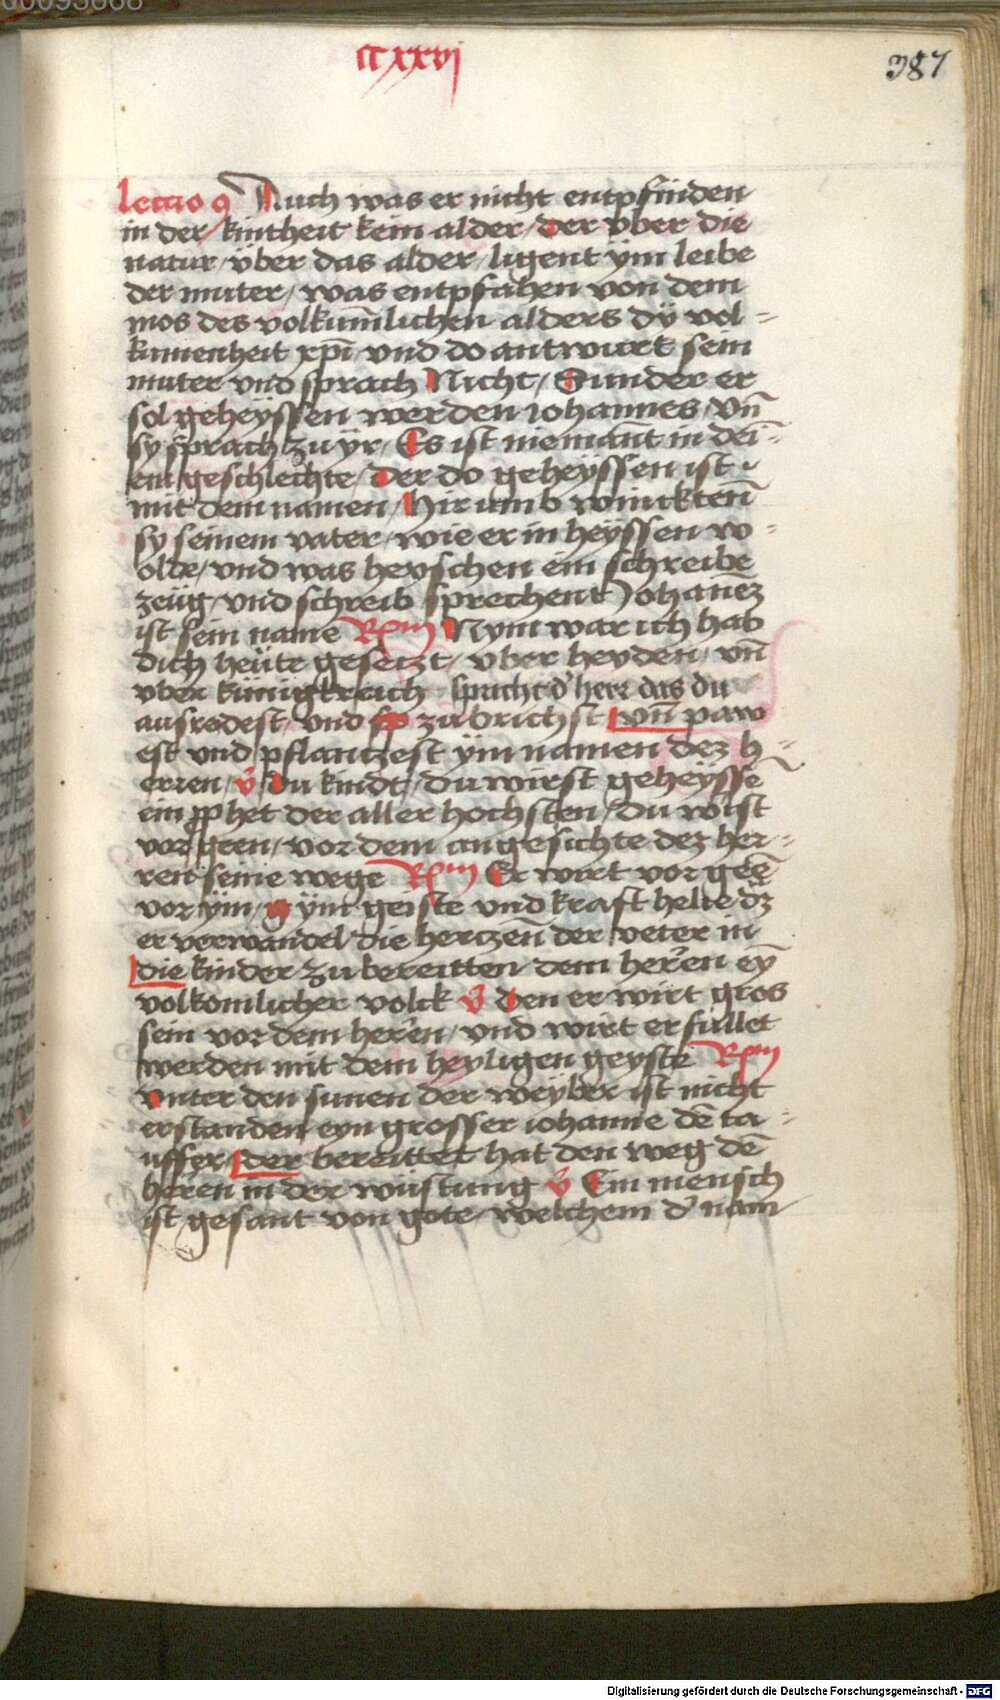 00093668
ccxxvi
387
lectio 9 Auch was er nicht entpfinden
in der kintheit kein alder / der vber die
natur / vber das alder / ligent ÿm leibe
der muter / was entpfahen von dem
mos des volkum̄lichen alders dÿ vol =
kumenheit xp̄i vnd do antwurt sein
muter vnd sprach Nicht / Sunder er
sol geheÿssen werden iohannes / vn̄
sy sprach zu ÿr / Es ist niemant in dei =
em geschlechte / der do geheÿssen ist
mit dem namen / Hir umb winckten̄
sy seinem vater / wie er in heÿssen wo =
olde / vnd was heyschen ein schreibe
zeüg / vnd schreib sprechent Johanēz
ist sein name Rm Nym war ich hab
dich heüte gesetzt / vber heyden / vn̄
vber künigkreich spricht d' herr das du
ausredest / vnd zubrichst vn̄ paw
est vnd pflantzest ÿm namen dez h =
erren / v̄ Du kindt / du wirst geheÿssē
ein ꝓphet der aller hochsten / du wirst
vor gren / vor dem angesichte dez her =
ren seine wege Rm Er wirt vor geē
vor ÿm / ÿm geiste vnd kraft helie dz
er verwandel die hertzen der veter in
die kinder zu bereitten dem herren eÿ
volkomlicher volck v̄ Den er wirt gros
sein vor dem herren / vnd wirt erfullet
werden mit dem heyligen geyste Rm
vnter den sunen der weÿber ist nicht
erstanden eyn grosser iohanne dē ta =
uffer / der bereittet hat den weg dē
herren in der wüstung v̄ Ein mensch
ist gesant von gote welchem d' nam
Digitalisierung gefördert durch die Deutsche Forschungsgemeinschaft - DFG